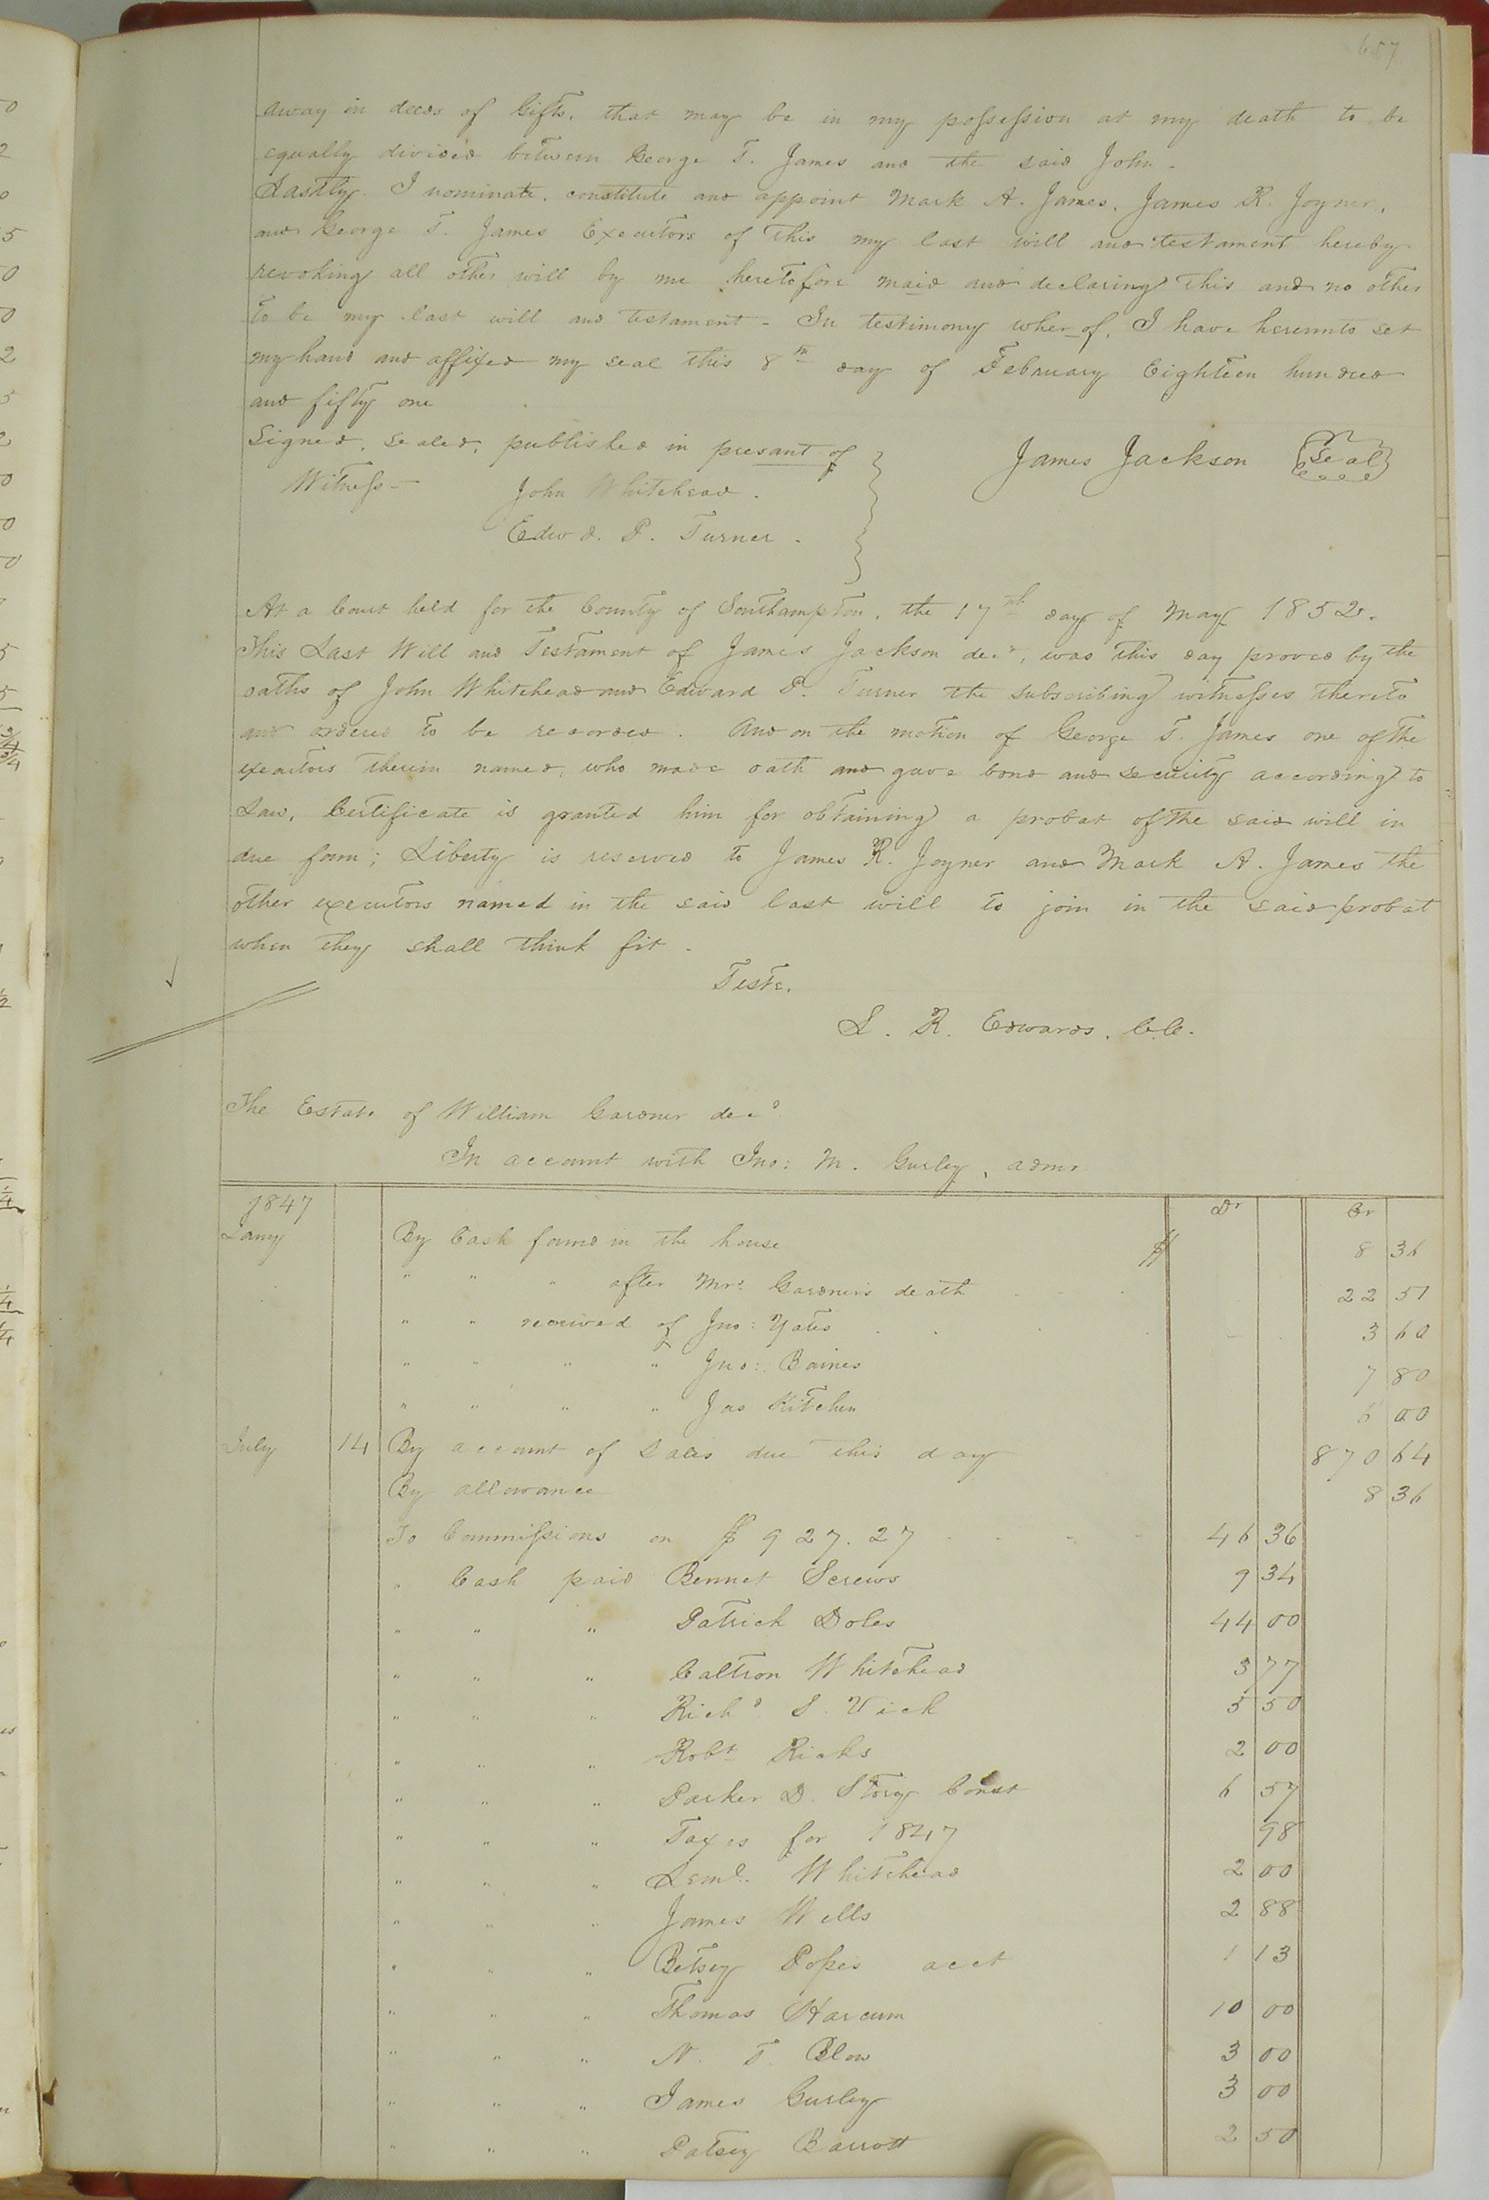 657
away in deeds of Gifts, that may be in my possession at my death to be
equally divided between George T. James and the said John.
Lastly. I nominate, constitute and appoint Mark A. James, James R. Joyner,
and George T. James Executors of this my last will and testament hereby
revoking all other will by me heretofore maid and declaring this and no other
to be my last will and testament - In testimony wherof, I have hereunto set
my hand and affixed my seal this 8th day of February Eighteen hundred
and fifty one
Signed, sealed, published in presant of
James Jackson {Seal}
Witness - John Whitehead.
Edwd. P. Turner.
At a Court held for the County of Southampton, the 17th day of May 1852.
This Last Will and Testament of James Jackson decd, was this day proved by the
oaths of John Whitehead and Edward P. Turner the subscribing witnesses thereto
and ordered to be recorded. And on the motion of George T. James one of the
executors therein named, who made oath and gave bond and security according to
Law, Certificate is granted him for obtaining a probat of the said will in
due form; Liberty is reserved to James R. Joyner and Mark A. James the
other executors named in the said last will to join in the said probat
when they shall think fit.
Teste.
L. R. Edwards, C.C.
The Estate of William Gardner decd
In account with Jno: M. Gurley, admr
1847 Dr Cr
Jany By Cash found in the house $ 8 36
" " " after Mrs. Gardner's death 22 51
" " received of Jno: Yates 3 60
" " " " Jno: Baines 7 80
" " " " Jas Kitchen 6 00
July 14 By account of Sales due this day 870 64
By allowance 8 36
To Commissions on $927.27 46 36
" Cash paid Bennet Screws 9 34
" " " Patrick Doles 44 00
" " " Caltron Whitehead 3 77
" " " Richd. S. Vick 5 50
" " " Robt Ricks 2 00
" " " Parker D. Story Const 6 57
" " " Taxes for 1847 98
" " " Leml. Whitehead 2 00
" " " James Wells 2 88
" " " Betsey Popes acct 1 13
" " " Thomas Harcum 10 00
" " " N. T. Blow 3 00
" " " James Gurley 3 00
" " " Patsey Barrott 2 50